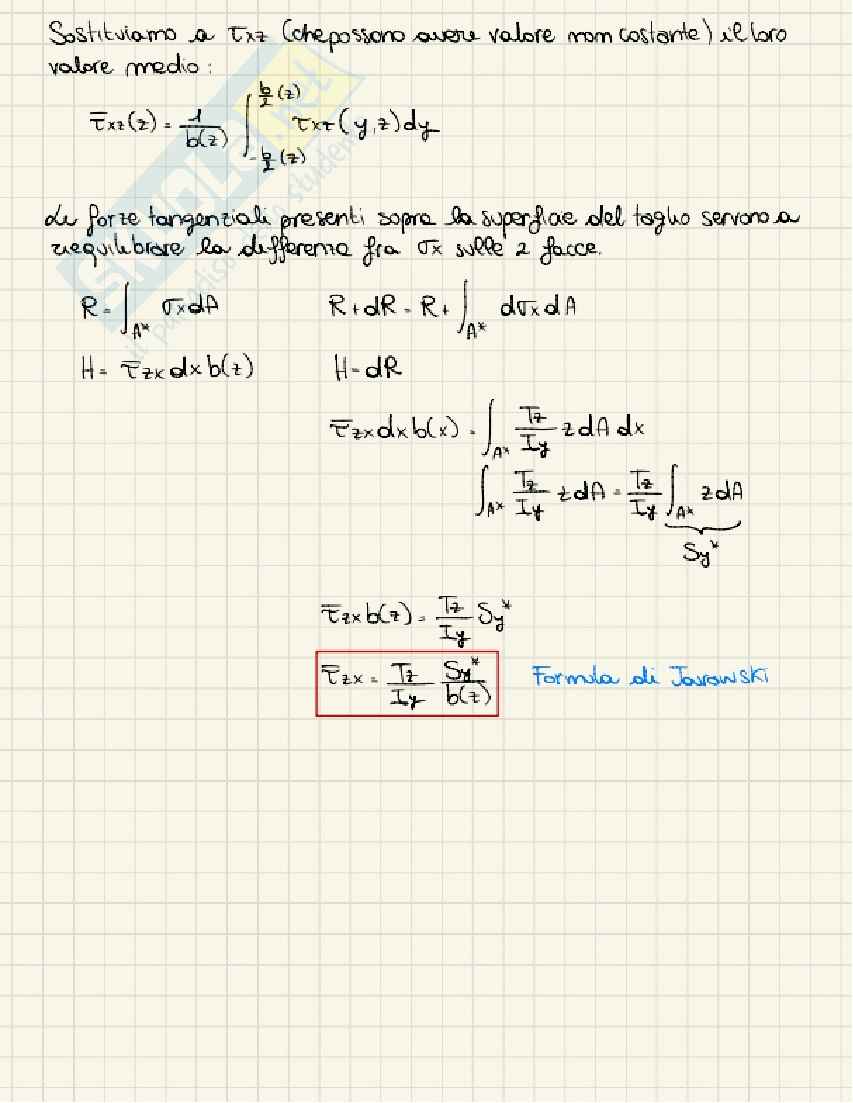 Sostituiamo a τxz (che possono avere valore non costante) il loro
valore medio:
τ̅xz(z) = 1/b(z) ∫_{-b/2(z)}^{b/2(z)} τxz(y,z)dy
Le forze tangenziali presenti sopra la superficie del taglio servono a
riequilibrare la differenza fra σx sulle 2 facce.
R = ∫_{A*} σx dA R+dR = R+ ∫_{A*} dσx dA
H = τ̅zx dx b(z) H = dR
τ̅zx dx b(x) = ∫_{A*} Tz/Iy z dA dx
∫_{A*} Tz/Iy z dA = Tz/Iy ∫_{A*} z dA
Sy*
τ̅zx b(z) = Tz/Iy Sy*
τ̅zx = Tz/Iy Sy*/b(z) Formula di Jourawski
SKUOLA.net
il paradiso dello studente